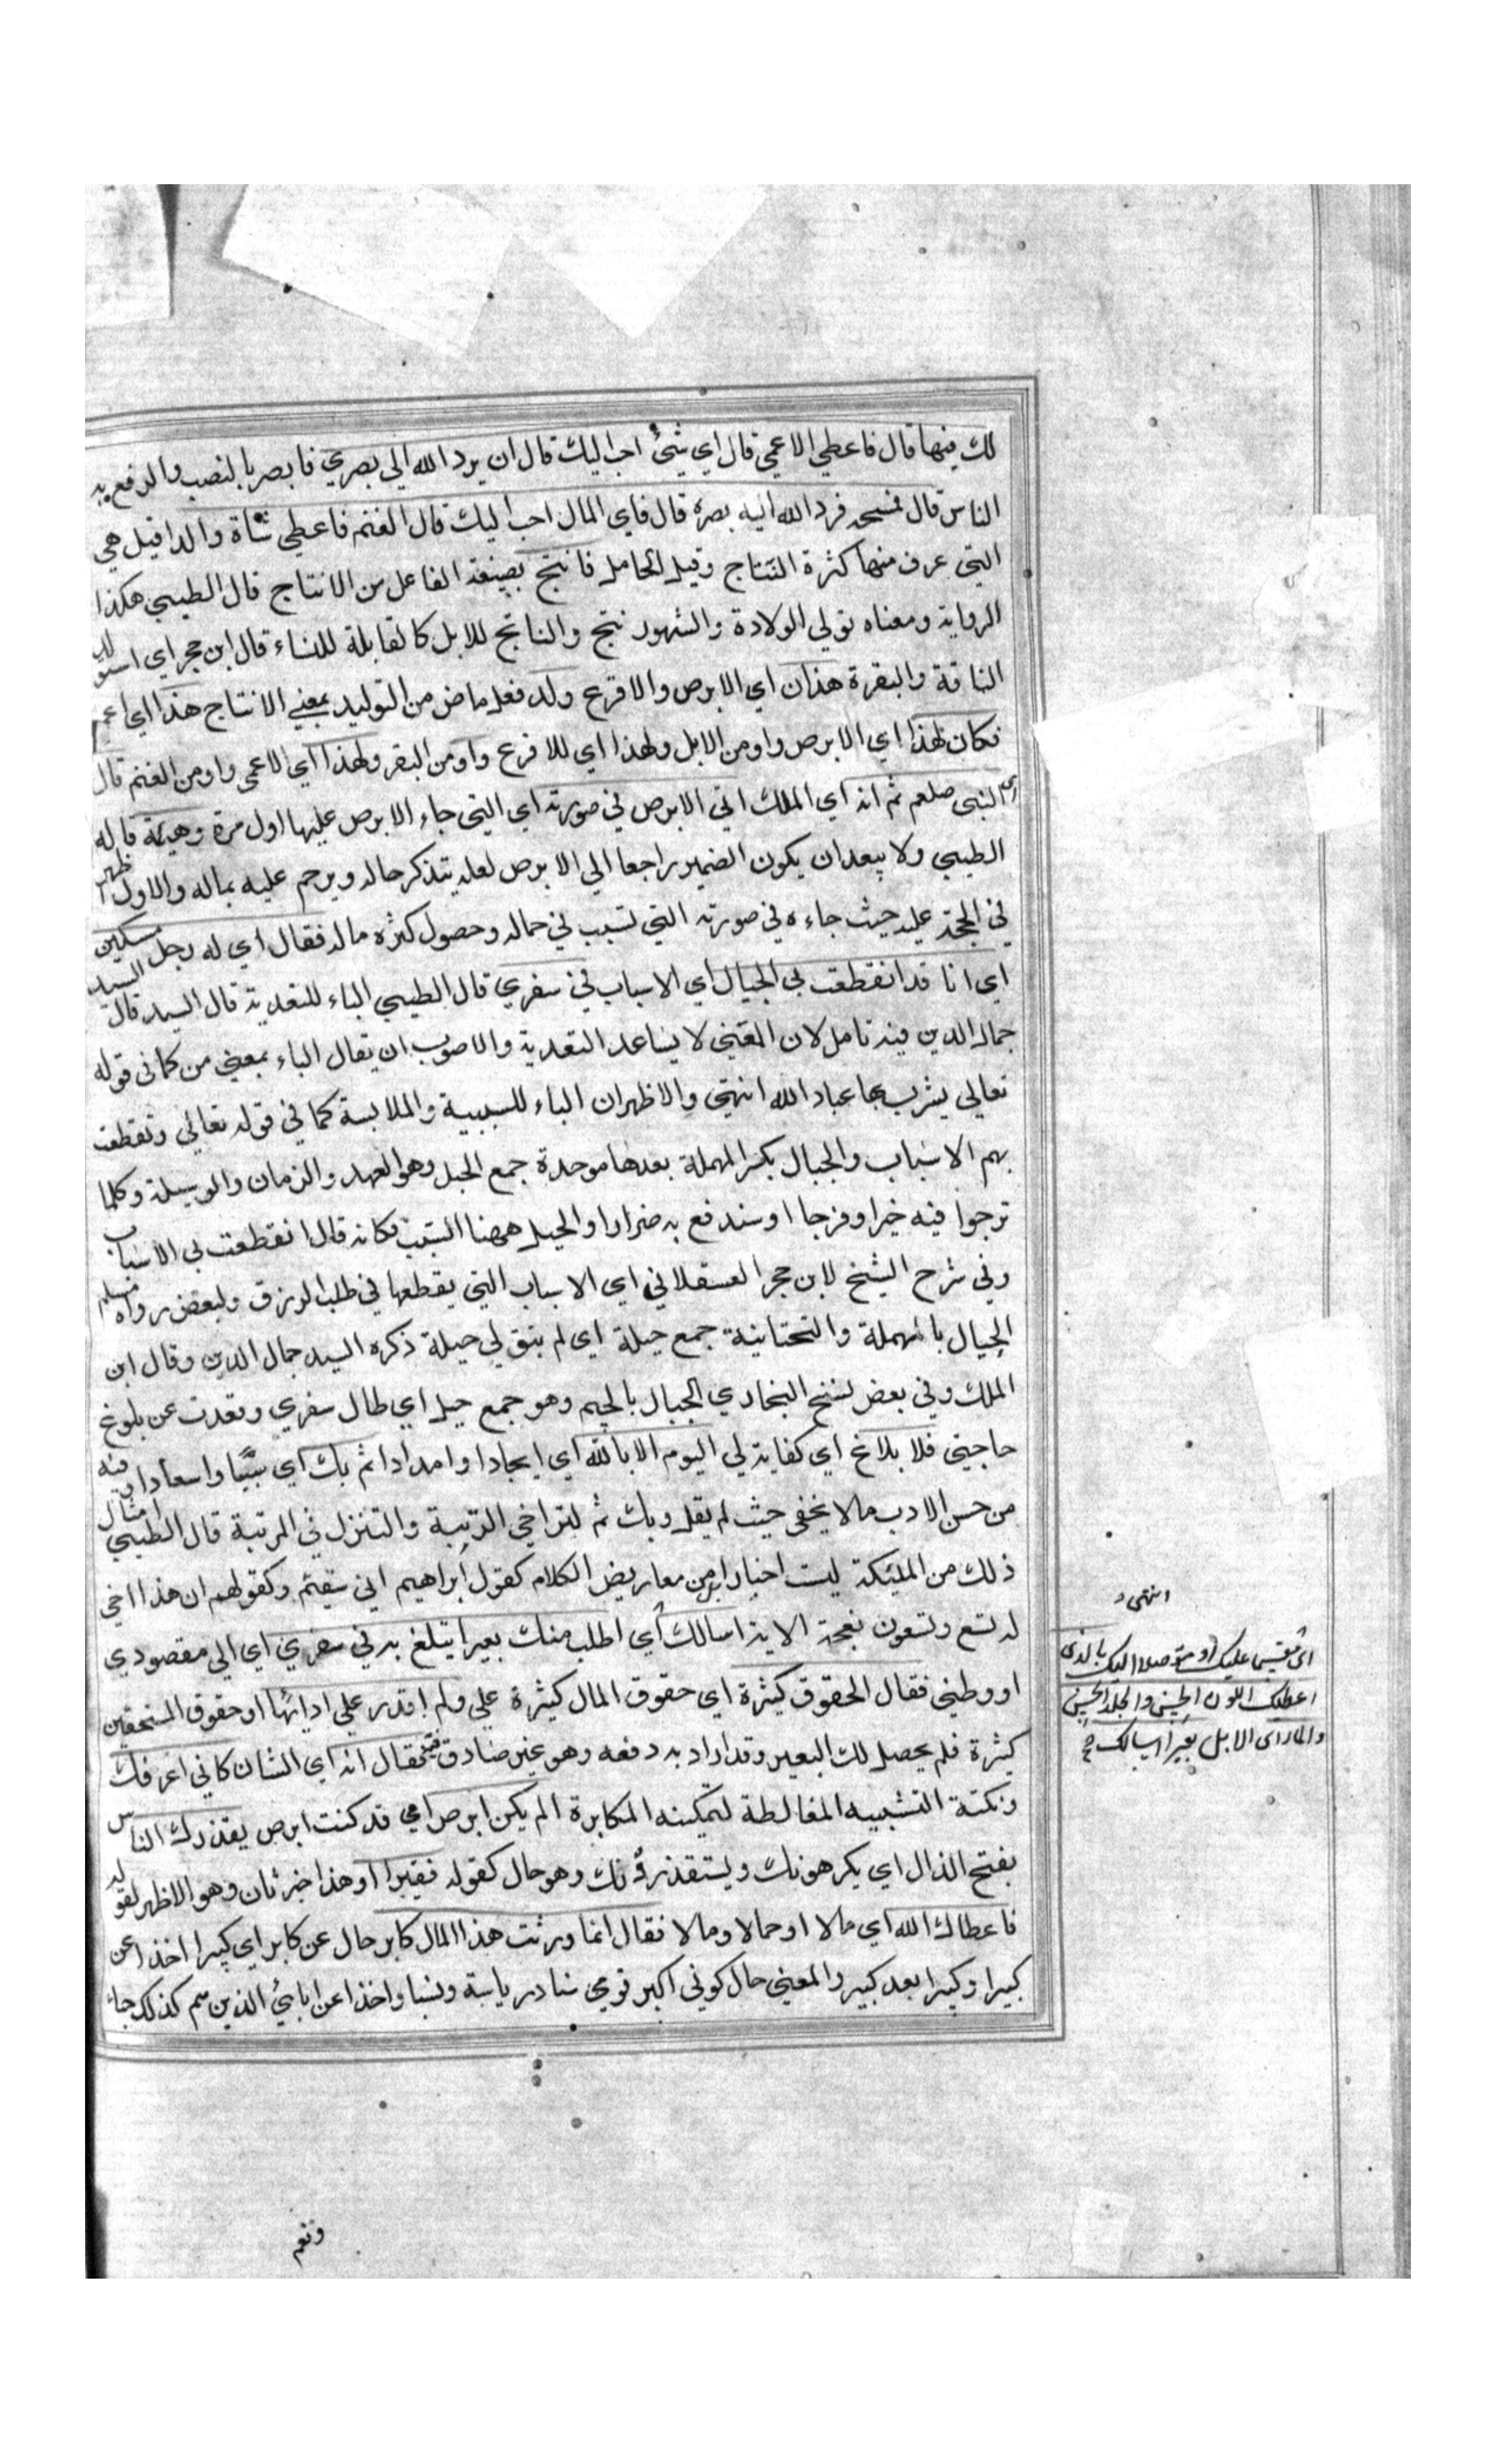 لك فيها قال فاعطي الاعمي قال اي شئ احب اليك قال ان يرد الله الي بصري فابصر بالنصب والرفع به
الناس قال فمسحه فرد الله اليه بصره قال فاي المال احب اليك قال الغنم فاعطي شاة والدا قيل هي
التي عرف منها كثرة النتاج وقيل الحامل فانتج بصيغة الفاعل من الانتاج قال الطيبي هكذا
الرواية ومعناه تولي الولادة والمشهور نتج والناتج للابل كالقابلة للنساء قال ابن حجر اي استولد
الناقة والبقرة هذان اي الابرص والاقرع وولد فعل ماض من التوليد بمعني الانتاج هذا اي اعمي
فكان لهذا اي الابرص واد من الابل ولهذا اي للاقرع واد من البقر ولهذا اي الاعمي واد من الغنم قال
اي النبي صلعم ثم انه اي الملك اتي الابرص في صورته اي التي جاء الابرص عليها اول مرة وهيئته قاله
الطيبي ولا يبعد ان يكون الضمير راجعا الي الابرص لعله يتذكر حاله ويرحم عليه بماله والاول اظهر
في الحجة عليه حيث جاءه في صورته التي تسبب في جماله وحصول كثرة ماله فقال اي له رجل مسكين
اي انا قد انقطعت بي الحبال اي الاسباب في سفري قال الطيبي الباء للتعدية قال السيد قال السيد
جمال الدين فيه تامل لان المعني لا يساعد التعدية والاصوب ان يقال الباء بمعني من كما في قوله
تعالي يشرب بها عباد الله انتهي والاظهر ان الباء للسببية والملابسة كما في قوله تعالي وتقطعت
بهم الاسباب والحبال بكسر المهملة بعدها موحدة جمع الحبل وهو العهد والزمان والوسيلة وكلما
ترجوا فيه خيرا وفرجا او سندفع به ضررا والحبل ههنا السبب فكانه قال انقطعت بي الاسباب
وفي شرح الشيخ لابن حجر العسقلاني اي الاسباب التي يقطعها في طلب الرزق ولبعض رواة مسلم
الحيال بالمهملة والتحتانية جمع حيلة اي لم يبق لي حيلة ذكره السيد جمال الدين وقال ابن
الملك وفي بعض نسخ البخاري الجبال بالجيم وهو جمع جبل اي طال سفري وبعدت عن بلوغ
حاجتي فلا بلاغ اي كفاية لي اليوم الا بالله اي ايجادا وامدادا ثم بك اي سببا واسعادا وفيه
من حسن الادب ما لا يخفي حيث لم يقل وبك ثم لتراخي الرتبة والتنزل في المرتبة قال الطيبي امثال
ذلك من الملئكة ليست اخبارا بل من معاريض الكلام كقول ابراهيم اني سقيم وكقولهم ان هذا اخي
له تسع وتسعون نعجة الاية اسالك اي اطلب منك بعيرا يتبلغ به في سفري اي الي مقصودي
او وطني فقال الحقوق كثيرة اي حقوق المال كثيرة علي ولم اقدر علي ادائها او حقوق المستحقين
كثيرة فلم يحصل لك البعير وقد اراد به دفعه وهو غير صادق فيه فقال انه اي الشان كاني اعرفك
ونكتة التشبيه المغالطة لتمكينه المكابرة الم يكن ابرصا اي قد كنت ابرص يقذرك الناس
بفتح الذال اي يكرهونك ويستقذرونك وهو حال كقوله فقيرا او هذا خبر ثان وهو الاظهر لقوله
فاعطاك الله اي مالا او جمالا ومالا فقال انما ورثت هذا المال كابر حال عن كابر اي كبيرا اخذا عن
كبيرا وكبيرا بعد كبير والمعني حال كوني اكبر قومي سنا ورياسة ونسبا واخذا عن ابائي الذين هم كذلك جاء
انتهي
اي مقسما عليك او متوصلا اليك بالذي
اعطاك اللون الحسن والجلد الحسن
والمال اي الابل بعيرا اسالك صح
ونعم